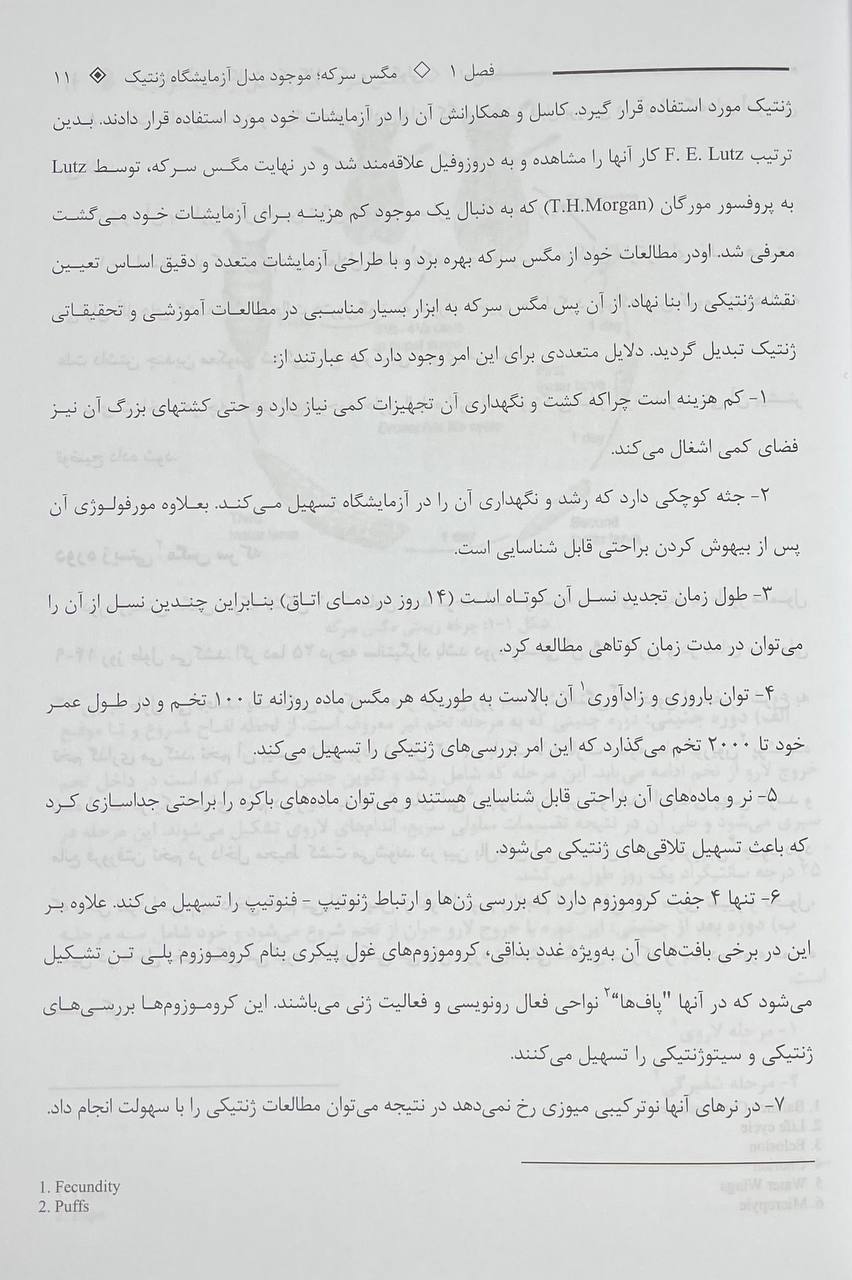 فصل ۱ ◇ مگس سرکه؛ موجود مدل آزمایشگاه ژنتیک ◈ ۱۱
ژنتیک مورد استفاده قرار گیرد. کاسل و همکارانش آن را در آزمایشات خود مورد استفاده قرار دادند. بدین
ترتیب F. E. Lutz کار آنها را مشاهده و به دروزوفیل علاقه‌مند شد و در نهایت مگس سرکه، توسط Lutz
به پروفسور مورگان (T.H.Morgan) که به دنبال یک موجود کم هزینه برای آزمایشات خود می‌گشت
معرفی شد. اودر مطالعات خود از مگس سرکه بهره برد و با طراحی آزمایشات متعدد و دقیق اساس تعیین
نقشه ژنتیکی را بنا نهاد. از آن پس مگس سرکه به ابزار بسیار مناسبی در مطالعات آموزشی و تحقیقاتی
ژنتیک تبدیل گردید. دلایل متعددی برای این امر وجود دارد که عبارتند از:
۱- کم هزینه است چراکه کشت و نگهداری آن تجهیزات کمی نیاز دارد و حتی کشتهای بزرگ آن نیز
فضای کمی اشغال می‌کند.
۲- جثه کوچکی دارد که رشد و نگهداری آن را در آزمایشگاه تسهیل می‌کند. بعلاوه مورفولوژی آن
پس از بیهوش کردن براحتی قابل شناسایی است.
۳- طول زمان تجدید نسل آن کوتاه است (۱۴ روز در دمای اتاق) بنابراین چندین نسل از آن را
می‌توان در مدت زمان کوتاهی مطالعه کرد.
۴- توان باروری و زادآوری۱ آن بالاست به طوریکه هر مگس ماده روزانه تا ۱۰۰ تخم و در طول عمر
خود تا ۲۰۰۰ تخم می‌گذارد که این امر بررسی‌های ژنتیکی را تسهیل می‌کند.
۵- نر و ماده‌های آن براحتی قابل شناسایی هستند و می‌توان ماده‌های باکره را براحتی جداسازی کرد
که باعث تسهیل تلاقی‌های ژنتیکی می‌شود.
۶- تنها ۴ جفت کروموزوم دارد که بررسی ژن‌ها و ارتباط ژنوتیپ - فنوتیپ را تسهیل می‌کند. علاوه بر
این در برخی بافت‌های آن به‌ویژه غدد بذاقی، کروموزوم‌های غول پیکری بنام کروموزوم پلی تن تشکیل
می‌شود که در آنها "پاف‌ها"۲ نواحی فعال رونویسی و فعالیت ژنی می‌باشند. این کروموزوم‌ها بررسی‌های
ژنتیکی و سیتوژنتیکی را تسهیل می‌کنند.
۷- در نرهای آنها نوترکیبی میوزی رخ نمی‌دهد در نتیجه می‌توان مطالعات ژنتیکی را با سهولت انجام داد.
1. Fecundity
2. Puffs